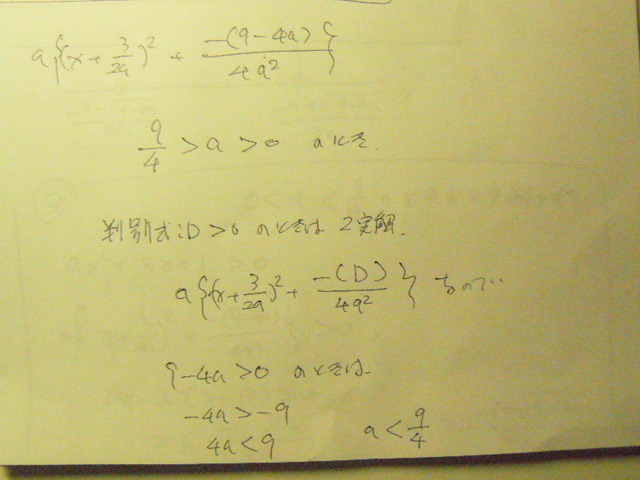 a{(x+3/2a)² + -(9-4a)/4a²}
9/4 > a > 0 のとき.
判別式:D>0 のときは 2実解.
a{(x+3/2a)² + -(D)/4a²} なので
9-4a>0 のときは
-4a>-9
4a<9 a<9/4